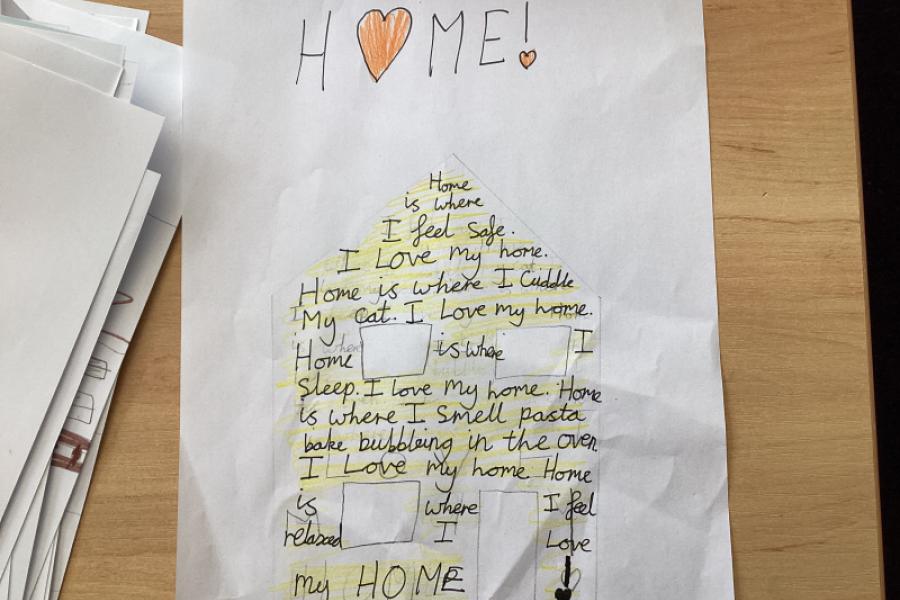 H♥ME!
Home
is where
I feel safe.
I Love my home.
Home is where I Cuddle
My cat. I Love my home.
Home is where I
Sleep. I love my home. Home
is where I Smell pasta
bake bubbleing in the oven
I Love my home Home
is where I feel
relaxed I Love
my HOME